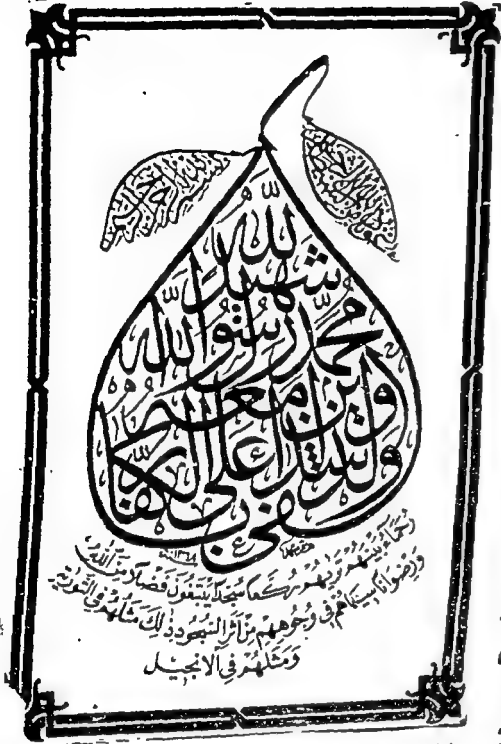 بسم الله الرحمن الرحيم
وكفى بالله شهيدا
محمد رسول الله
والذين معه
أشداء على الكفار
رُحَمَاءُ بَيْنَهُمْ تَرَاهُمْ رُكَّعًا سُجَّدًا يَبْتَغُونَ فَضْلًا مِنَ اللّٰهِ
وَرِضْوَانًا سِيمَاهُمْ فِي وُجُوهِهِمْ مِنْ أَثَرِ السُّجُودِ ذٰلِكَ مَثَلُهُمْ فِي التَّوْرٰيةِ
وَمَثَلُهُمْ فِي الْانْجِيلِ